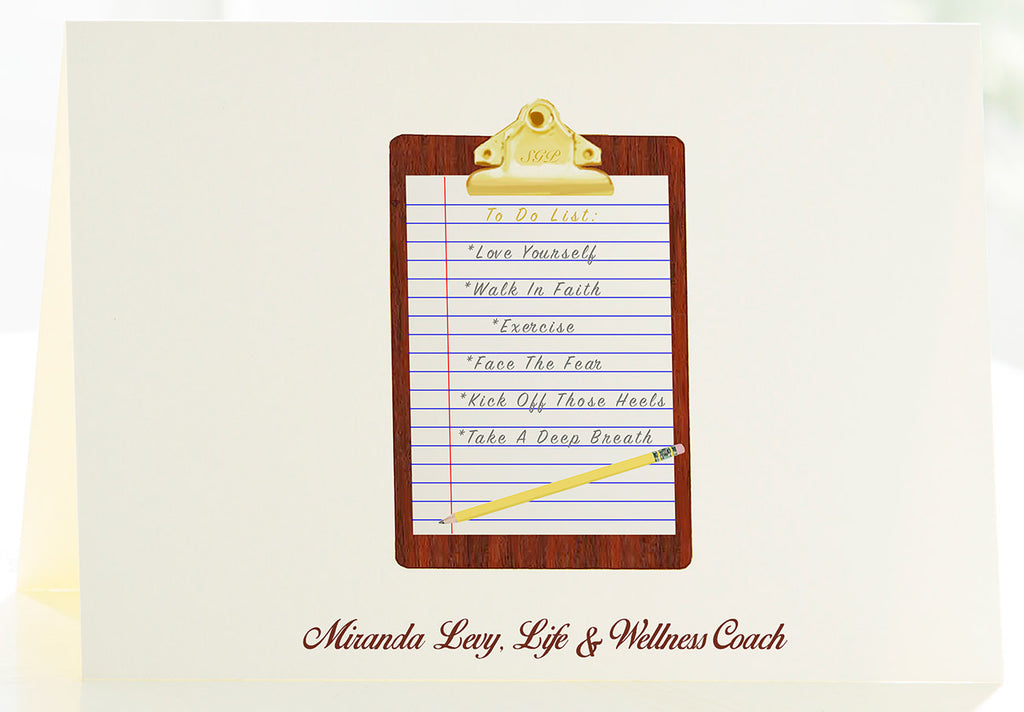 SGP
To Do List:
*Love Yourself
*Walk In Faith
*Exercise
*Face The Fear
*Kick Off Those Heels
*Take A Deep Breath
Miranda Levy, Life & Wellness Coach